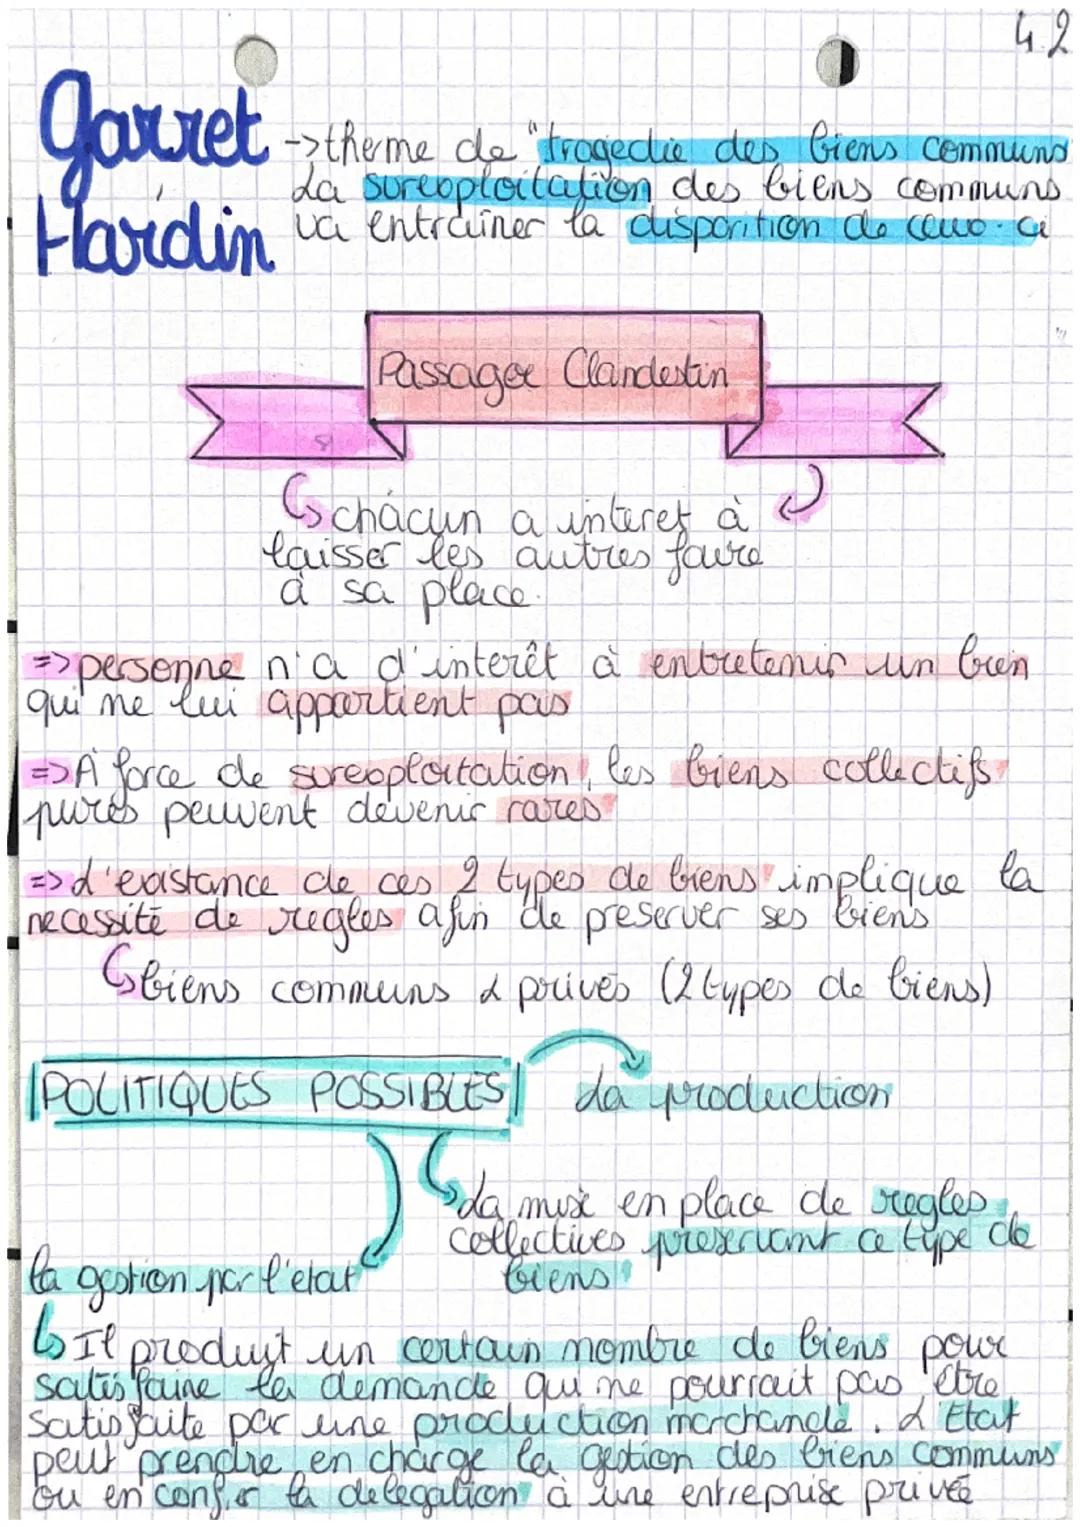 4.2
Garret
Hardin
->theme de "tragedie des biens communs
La surexploitation des biens communs
va entraîner la disparition de ceux-ci
Passager Clandestin
chacun a interet à
laisser les autres faire
à sa place.
=> personne n'a d'interêt à entretenir un bien
qui ne lui appartient pas
=> À force de surexploitation, les biens collectifs
pures peuvent devenir rares
=> L'existance de ces 2 types de biens implique la
necessité de regles afin de preserver ses biens
biens communs & privés (2 types de biens)
POLITIQUES POSSIBLES
La production
La mise en place de regles
collectives preservant ce type de
biens
la gestion par l'etat
Il produit un certain nombre de biens pour
satisfaire la demande qui ne pourrait pas être
satisfaite par une production marchande. L'Etat
peut prendre en charge la gestion des biens communs
ou en confier la delegation à une entreprise privée